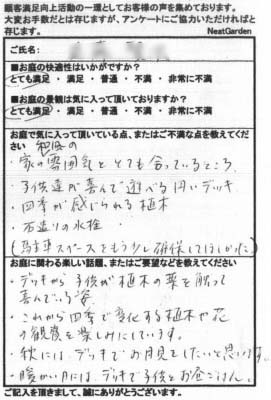 顧客満足向上活動の一環としてお客様の声を集めております。
大変お手数だとは存じますが、アンケートにご協力いただければと
存じます。 NeatGarden
ご氏名:
■お庭の快適性はいかがですか?
とても満足 ・ 満足 ・ 普通 ・ 不満 ・ 非常に不満
■お庭の景観は気に入って頂いておりますか?
とても満足 ・ 満足 ・ 普通 ・ 不満 ・ 非常に不満
お庭で気に入って頂いている点、またはご不満な点を教えてくだ
さい
・家の雰囲気ととても合っているところ
・子供達が喜んで遊べる円いデッキ
・四季が感じられる植木
・石造りの水栓
(駐車スペースをもう少し確保してほしかった)
お庭に関わる楽しい話題、またはご要望などを教えてください
・デッキから子供が植木の葉を触って
喜んでいる姿
・これから四季で変化する植木や花
の観賞を楽しみにしています。
・秋にはデッキでお月見をしたいと思います。
・暖かい日にはデッキで子供とお昼ごはん。
ご記入を頂きまして、誠にありがとうございます。